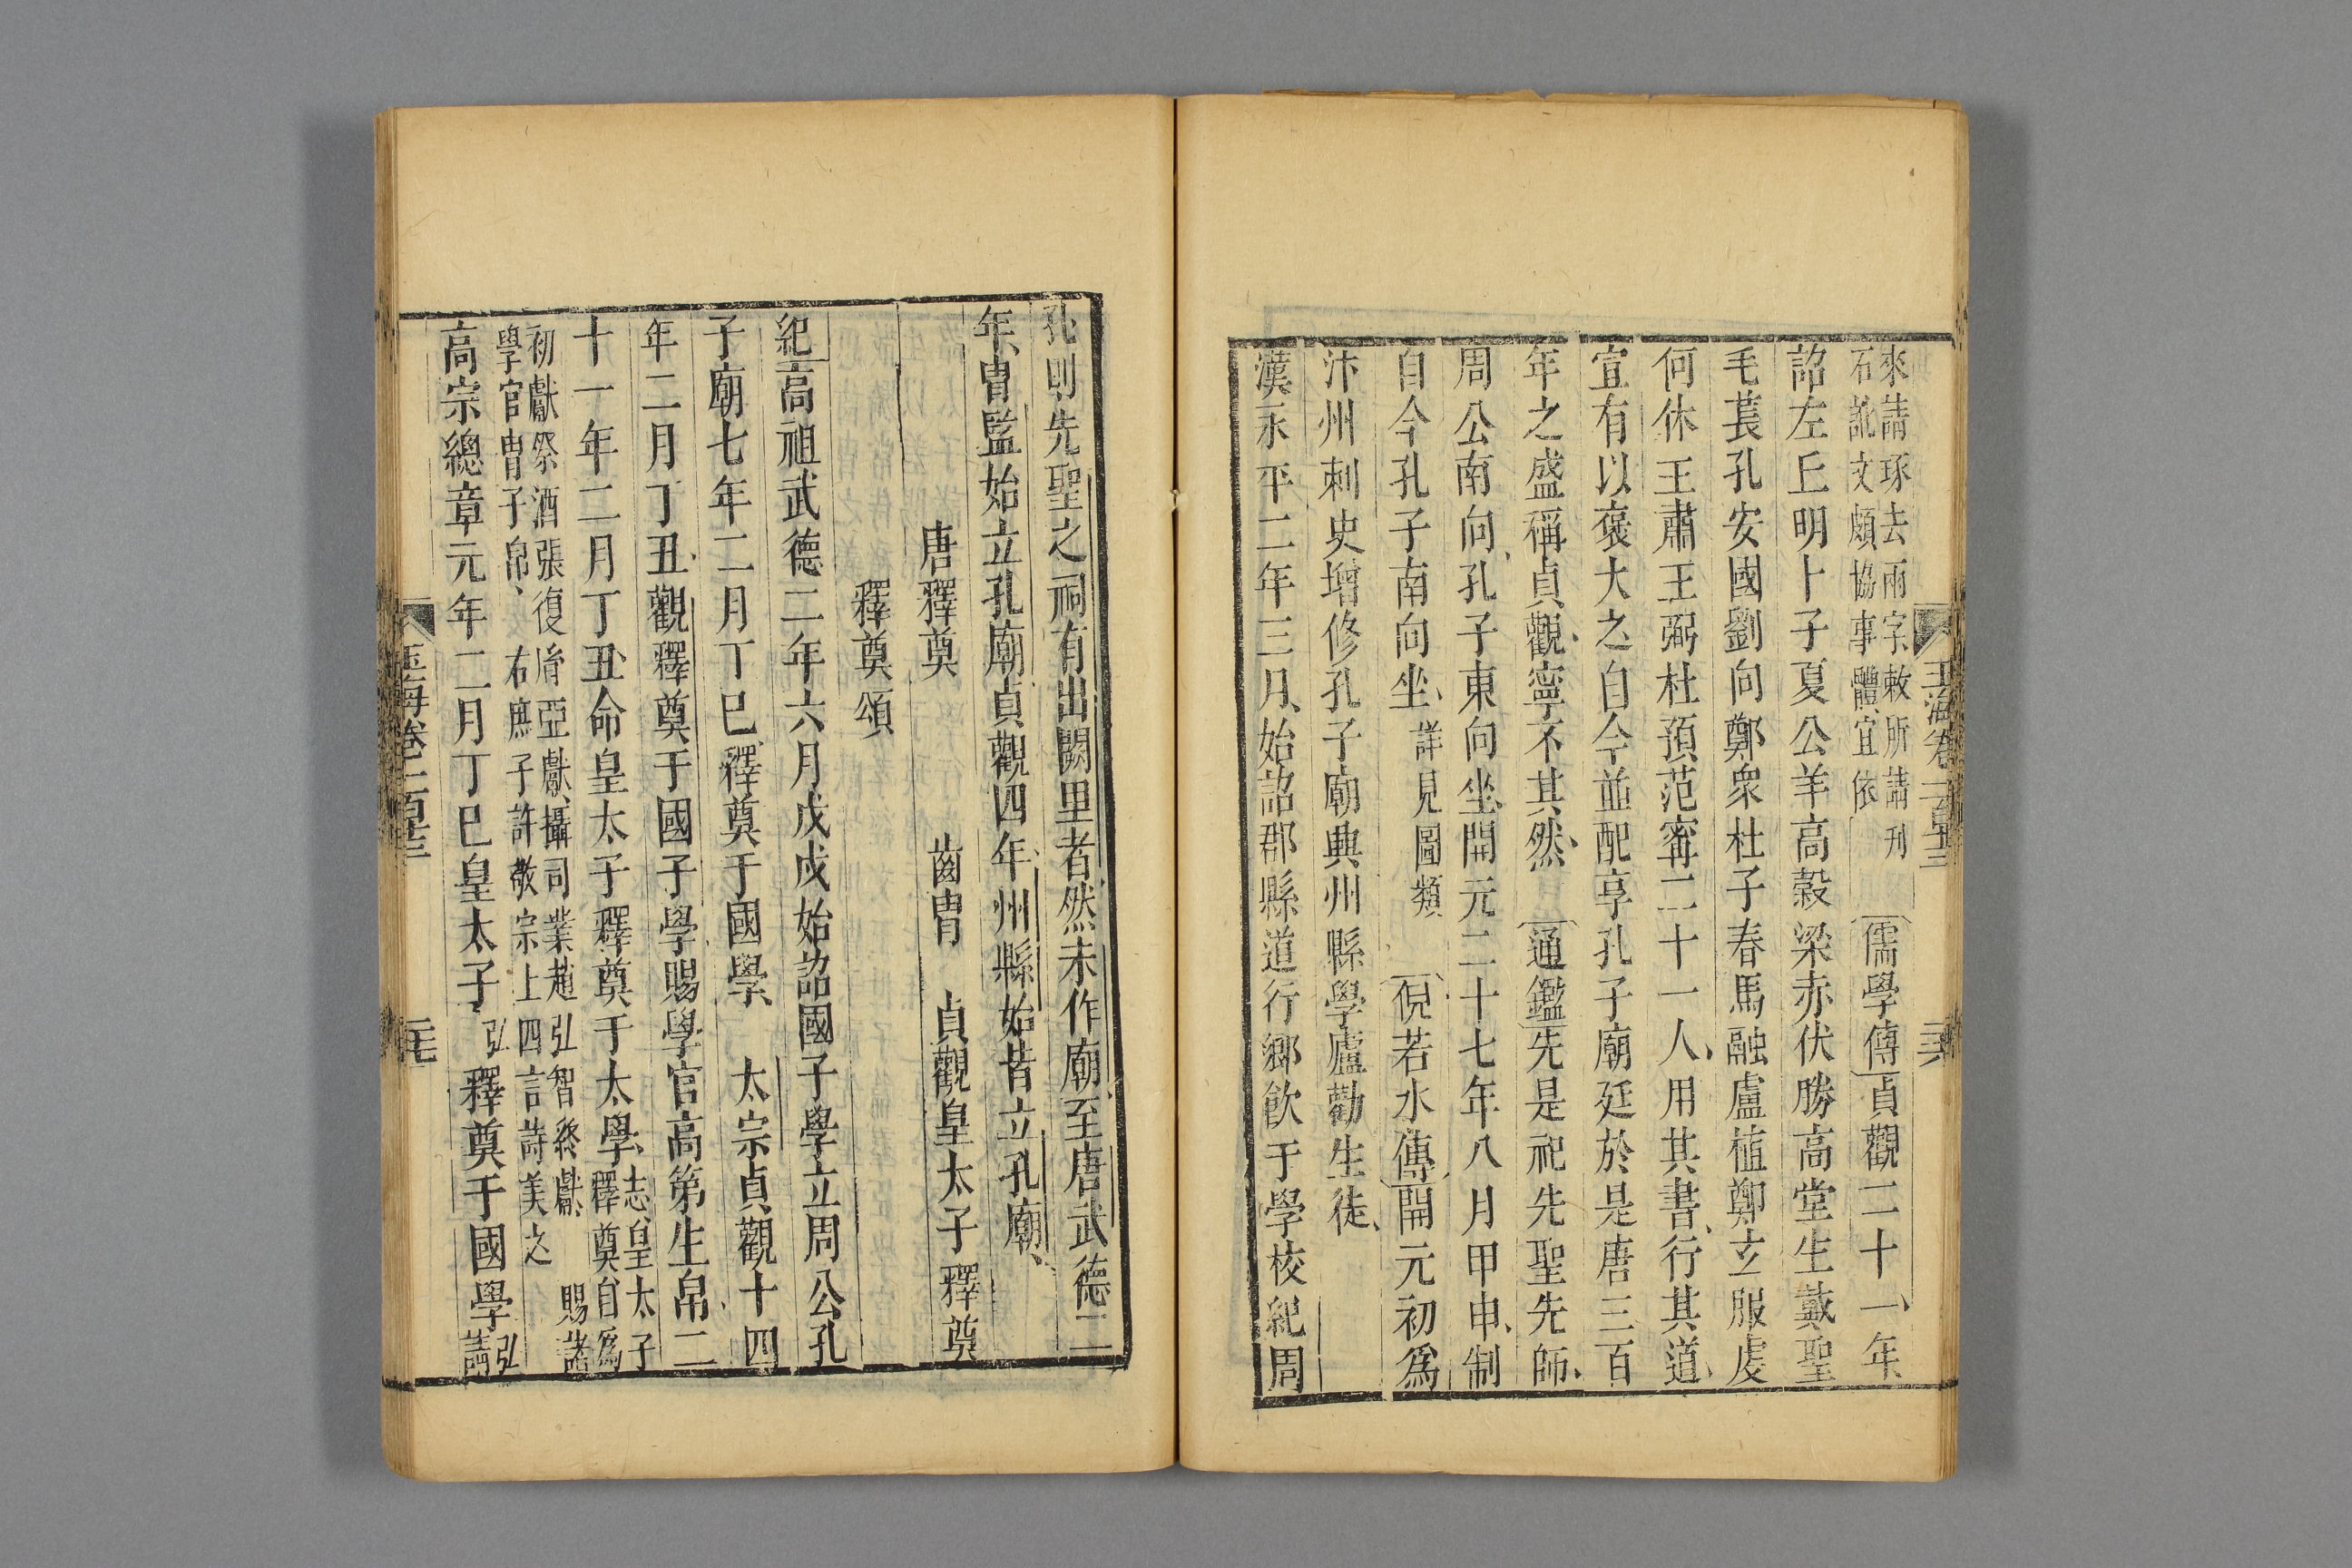 玉海卷一百十三
來請琢去兩字敕所請刊
石訛文頗協事體宜依
儒學傳貞觀二十一年
詔左丘明卜子夏公羊高穀梁赤伏勝高堂生戴聖
毛萇孔安國劉向鄭衆杜子春馬融盧植鄭玄服虔
何休王肅王弼杜預范甯二十一人用其書行其道
宜有以褒大之自今並配享孔子廟廷於是唐三百
年之盛稱貞觀寧不其然 通鑑先是祀先聖先師
周公南向孔子東向坐開元二十七年八月甲申制
自今孔子南向坐詳見圖類 倪若水傳開元初爲
汴州刺史增修孔子廟興州縣學廬勸生徒
漢永平二年三月始詔郡縣道行鄉飲于學校祀周
孔則先聖之祠有出闕里者然未作廟至唐武德二
年胄監始立孔廟貞觀四年州縣始皆立孔廟
唐釋奠 齒胄 貞觀皇太子釋奠
釋奠頌
紀高祖武德二年六月戊戌始詔國子學立周公孔
子廟七年二月丁巳釋奠于國學 太宗貞觀十四
年二月丁丑觀釋奠于國子學賜學官高第生帛二
十一年二月丁丑命皇太子釋奠于太學
志皇太子
釋奠自爲
初獻祭酒張復胤亞獻攝司業趙弘智終獻 賜諸
學官胄子帛 右庶子許敬宗上四言詩美之
高宗總章元年二月丁巳皇太子弘釋奠于國學
弘
請
玉海卷一百十三
二十七